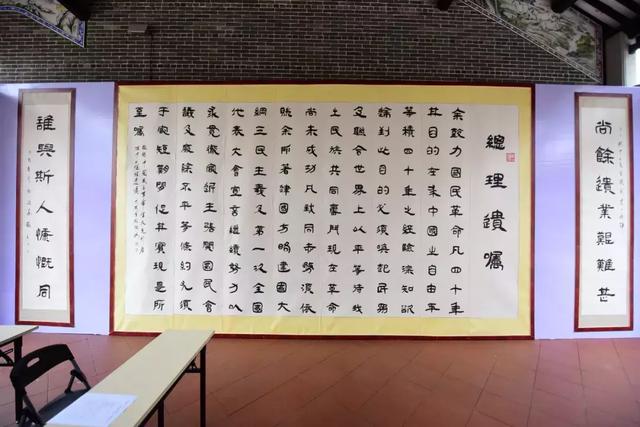 尚餘遺業艱難甚
總理遺囑
余致力國民革命凡四十年
其目的在求中國之自由平
等積四十年之經驗深知欲
達到此目的必須喚起民眾
及聯合世界上以平等待我
之民族共同奮鬥現在革命
尚未成功凡我同志務須依
照余所著建國方略建國大
綱三民主義及第一次全國
代表大會宣言繼續努力以
求貫徹最近主張開國民會
議及廢除不平等條約尤須
於最短期間促其實現是所
至囑
誰與斯人慷慨同